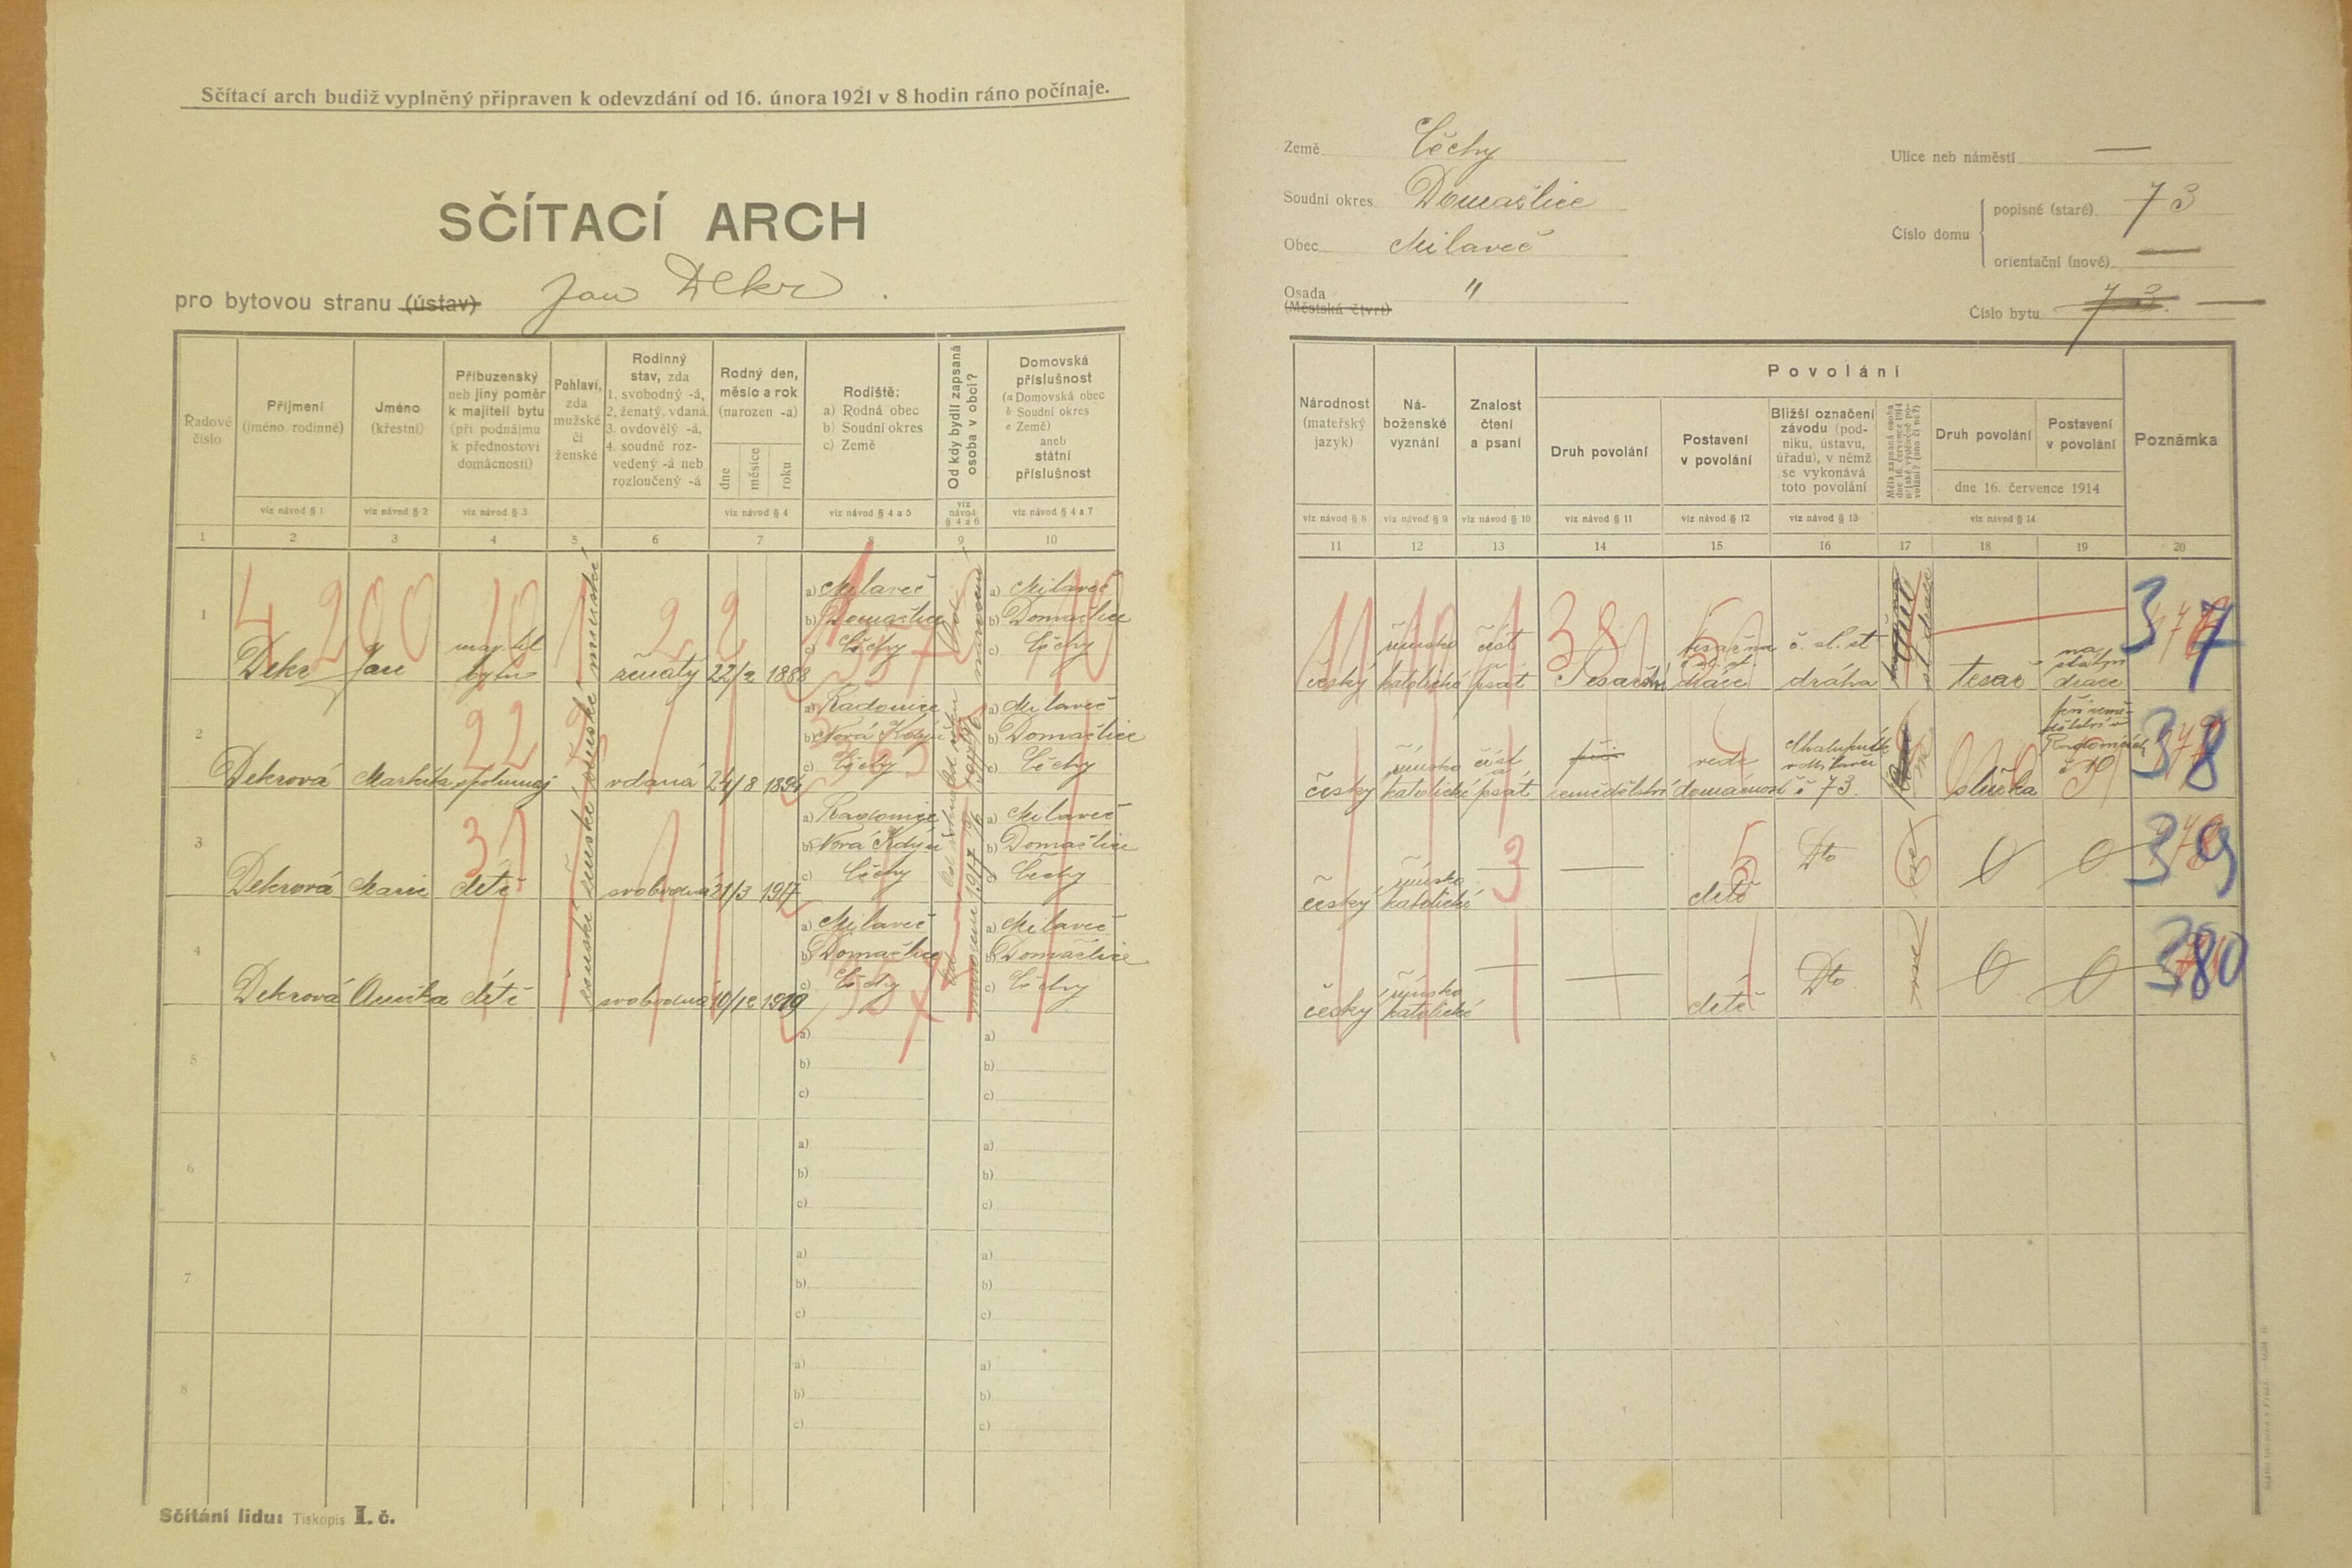 Sčítací arch budiž vyplněný připraven k odevzdání od 16. února 1921 v 8 hodin ráno počínaje.
SČÍTACÍ ARCH
pro bytovou stranu (ústav) Jan Dekr.
Řadové číslo
Příjmení
(jméno rodinné)
Jméno
(křestní)
Příbuzenský
neb jiný poměr
k majiteli bytu
(při podnájmu
k přednostovi
domácnosti)
Pohlaví,
zda
mužské
či
ženské
Rodinný
stav, zda
1. svobodný -á,
2. ženatý, vdaná,
3. ovdovělý -á,
4. soudně roz-
vedený -á neb
rozloučený -á
Rodný den,
měsíc a rok
(narozen -a)
dne
měsíce
roku
Rodiště:
a) Rodná obec
b) Soudní okres
c) Země
Od kdy bydlí zapsaná
osoba v obci?
Domovská
příslušnost
(a Domovská obec
b Soudní okres
c Země)
aneb
státní
příslušnost
viz návod § 1
viz návod § 2
viz návod § 3
viz návod § 4
viz návod § 4 a 5
viz návod § 4 a 6
viz návod § 4 a 7
1 2 3 4 5 6 7 8 9 10
1 Dekr Jan majitel bytu mužské ženatý 22/2 1888
a) Milaveč
b) Domažlice
c) Čechy
a) Milaveč
b) Domažlice
c) Čechy
2 Dekrová Markéta ženské vdaná 24/8 1894
a) Radonice
b) Nová Kdyň
c) Čechy
a) Milaveč
b) Domažlice
c) Čechy
3 Dekrová Marie dítě ženské svobodná 21/3 1917
a) Radonice
b) Nová Kdyň
c) Čechy
a) Milaveč
b) Domažlice
c) Čechy
4 Dekrová Anička dítě ženské svobodná 10/12 1919
a) Milaveč
b) Domažlice
c) Čechy
a) Milaveč
b) Domažlice
c) Čechy
5
a) a)
b) b)
c) c)
6
a) a)
b) b)
c) c)
7
a) a)
b) b)
c) c)
8
a) a)
b) b)
c) c)
Sčítání lidu: Tiskopis I. č.
Země Čechy
Soudní okres Domažlice
Obec Milaveč
Osada "
(Městská čtvrť)
Ulice neb náměstí —
Číslo domu
popisné (staré) 73
orientační (nové) —
Číslo bytu 73. —
Národnost
(mateřský
jazyk)
Ná-
boženské
vyznání
Znalost
čtení
a psaní
Povolání
Druh povolání
Postavení
v povolání
Bližší označení
závodu (pod-
niku, ústavu,
úřadu), v němž
se vykonává
toto povolání
Měla zapsaná osoba
dne 16. července 1914
nějaké výdělečné po-
volání? (ano či ne?)
Druh povolání
Postavení
v povolání
dne 16. července 1914
Poznámka
viz návod § 8
viz návod § 9
viz návod § 10
viz návod § 11
viz návod § 12
viz návod § 13
viz návod § 14
11 12 13 14 15 16 17 18 19 20
český římsko katolické číst psát dráce č. sl. st. dráha tesař na státní dráce 37
český římsko katolické číst a psát zemědělství vede domácnost v Milavči č 73. služka 38
český římsko katolické — — dítě Dto ne 0 0 39
český římsko katolické — — dítě Dto ne 0 0 380